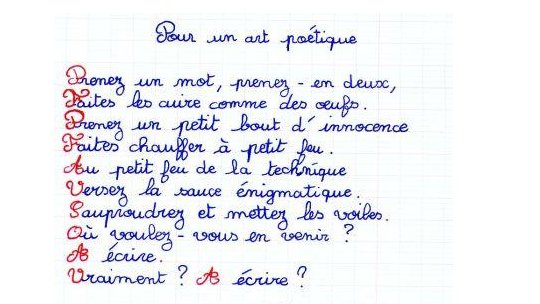 Pour un art poétique
Prenez un mot, prenez-en deux,
Faites les cuire comme des œufs.
Prenez un petit bout d'innocence
Faites chauffer à petit feu.
Au petit feu de la technique
Versez la sauce énigmatique.
Saupoudrez et mettez les voiles.
Où voulez-vous en venir ?
A écrire.
Vraiment ? A écrire ?